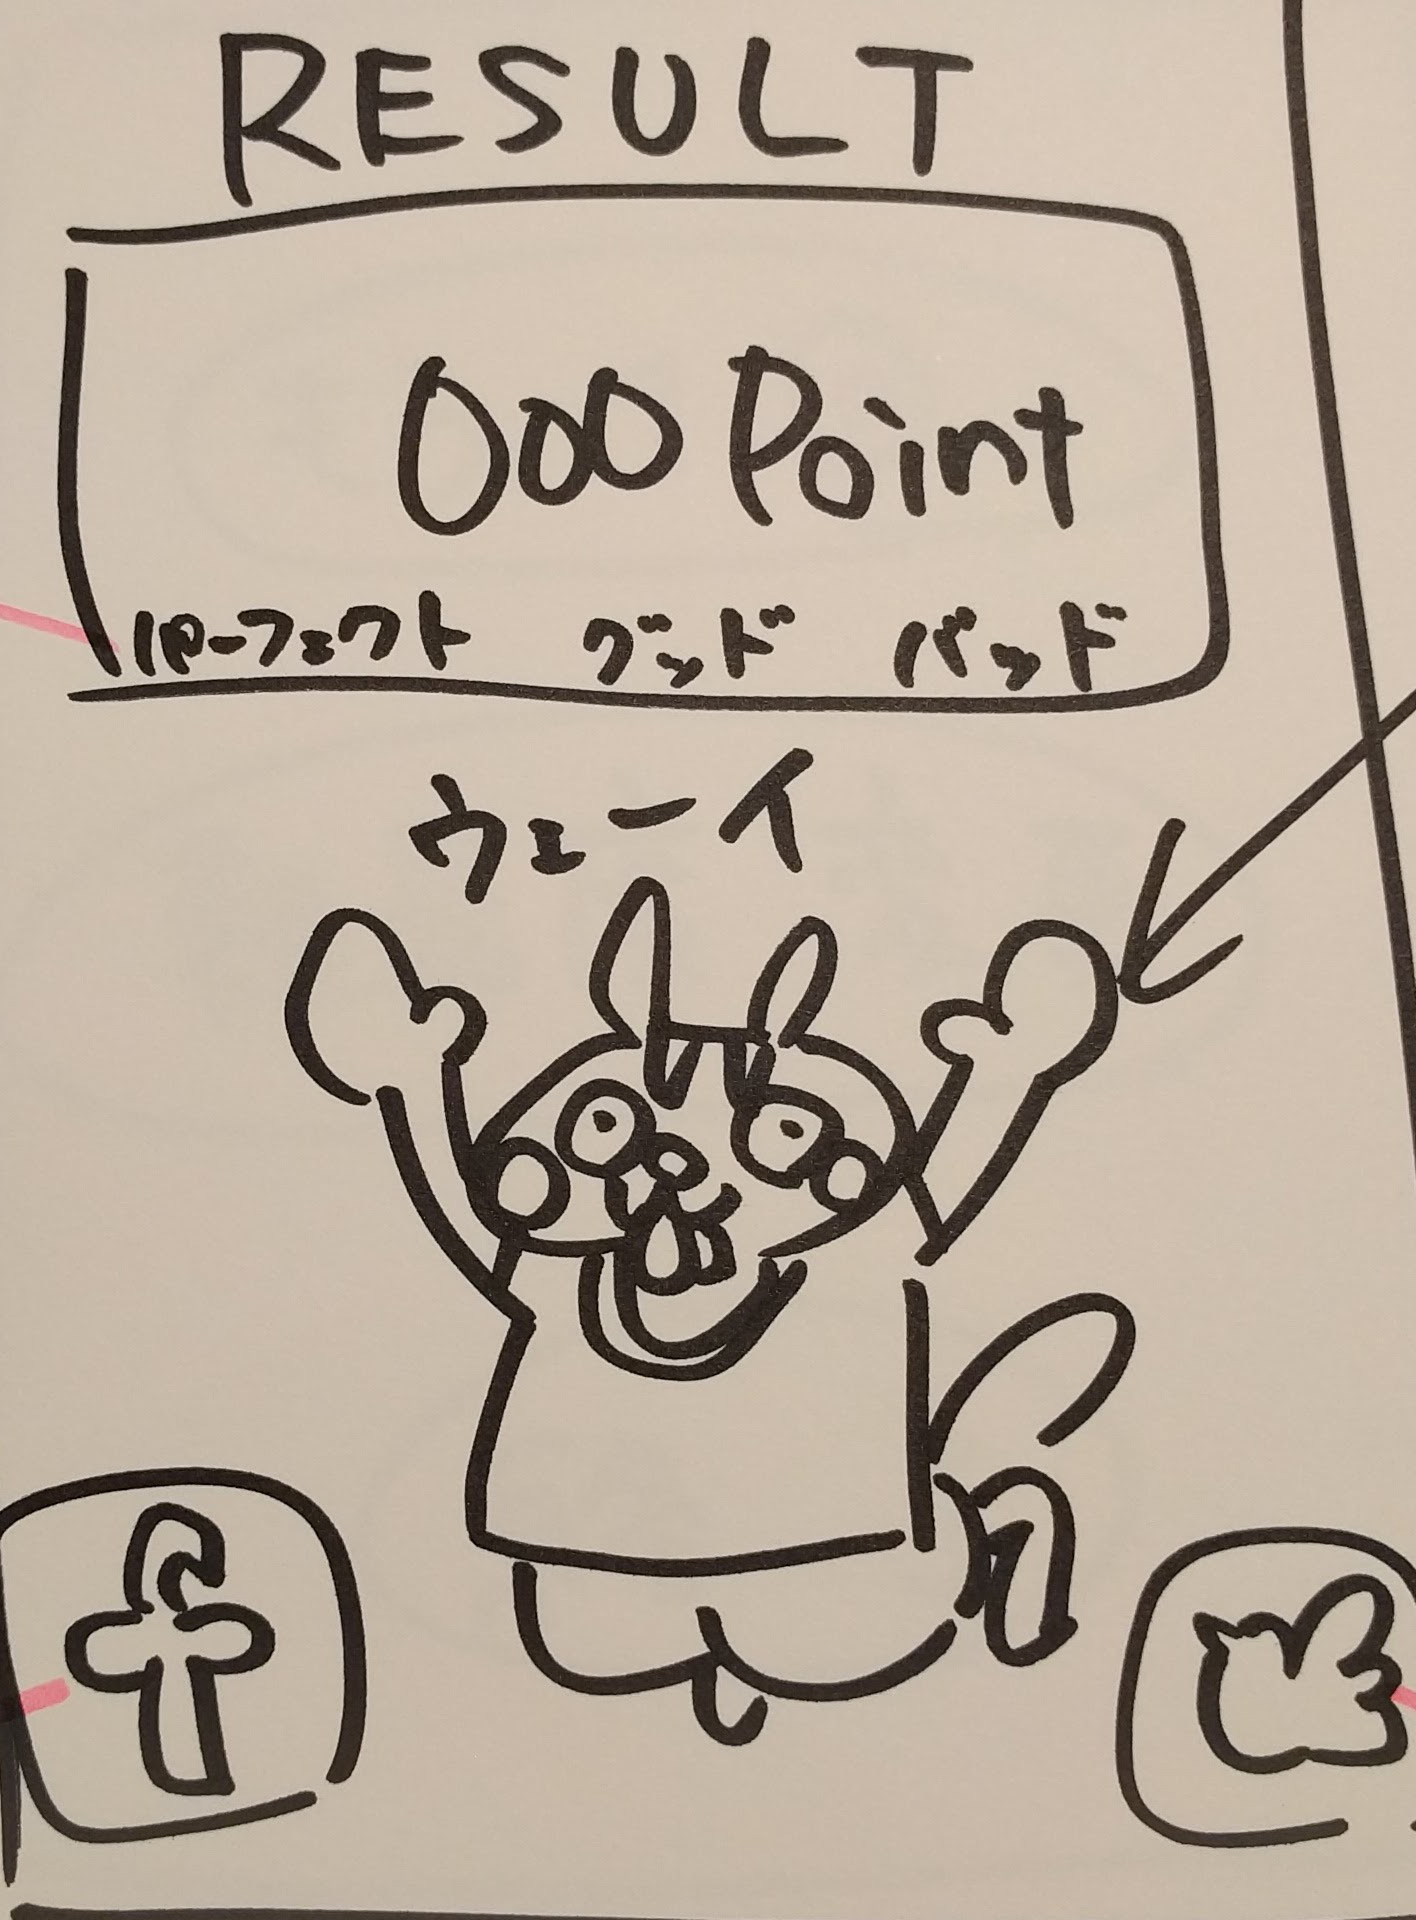 RESULT
000 Point
パーフェクト グッド バッド
ウェーイ